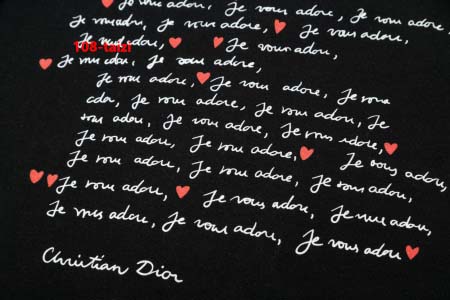 Je vous adore, Je vous adore,
Je vous adore, Je vous adore, Je vous adore,
Je vous adore, Je vous adore,
108-taizi
Je vous adore, Je vous adore,
Je vous adore, Je vous adore, Je vous
adore, Je vous adore, Je vous adore, Je
vous adore, Je vous adore, Je vous adore,
Je vous adore, Je vous adore, Je vous adore,
Je vous adore, Je vous adore, Je vous adore,
Je vous adore, Je vous adore, Je vous adore,
Je vous adore, Je vous adore, Je vous adore
Christian Dior